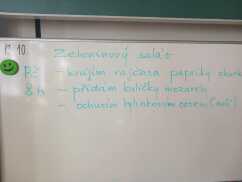 10.
Zeleninový salát
Rž - krájím rajčata papriky okurk
8h - přidám kuličky mozarell
- ochutím bylinkovým octem (